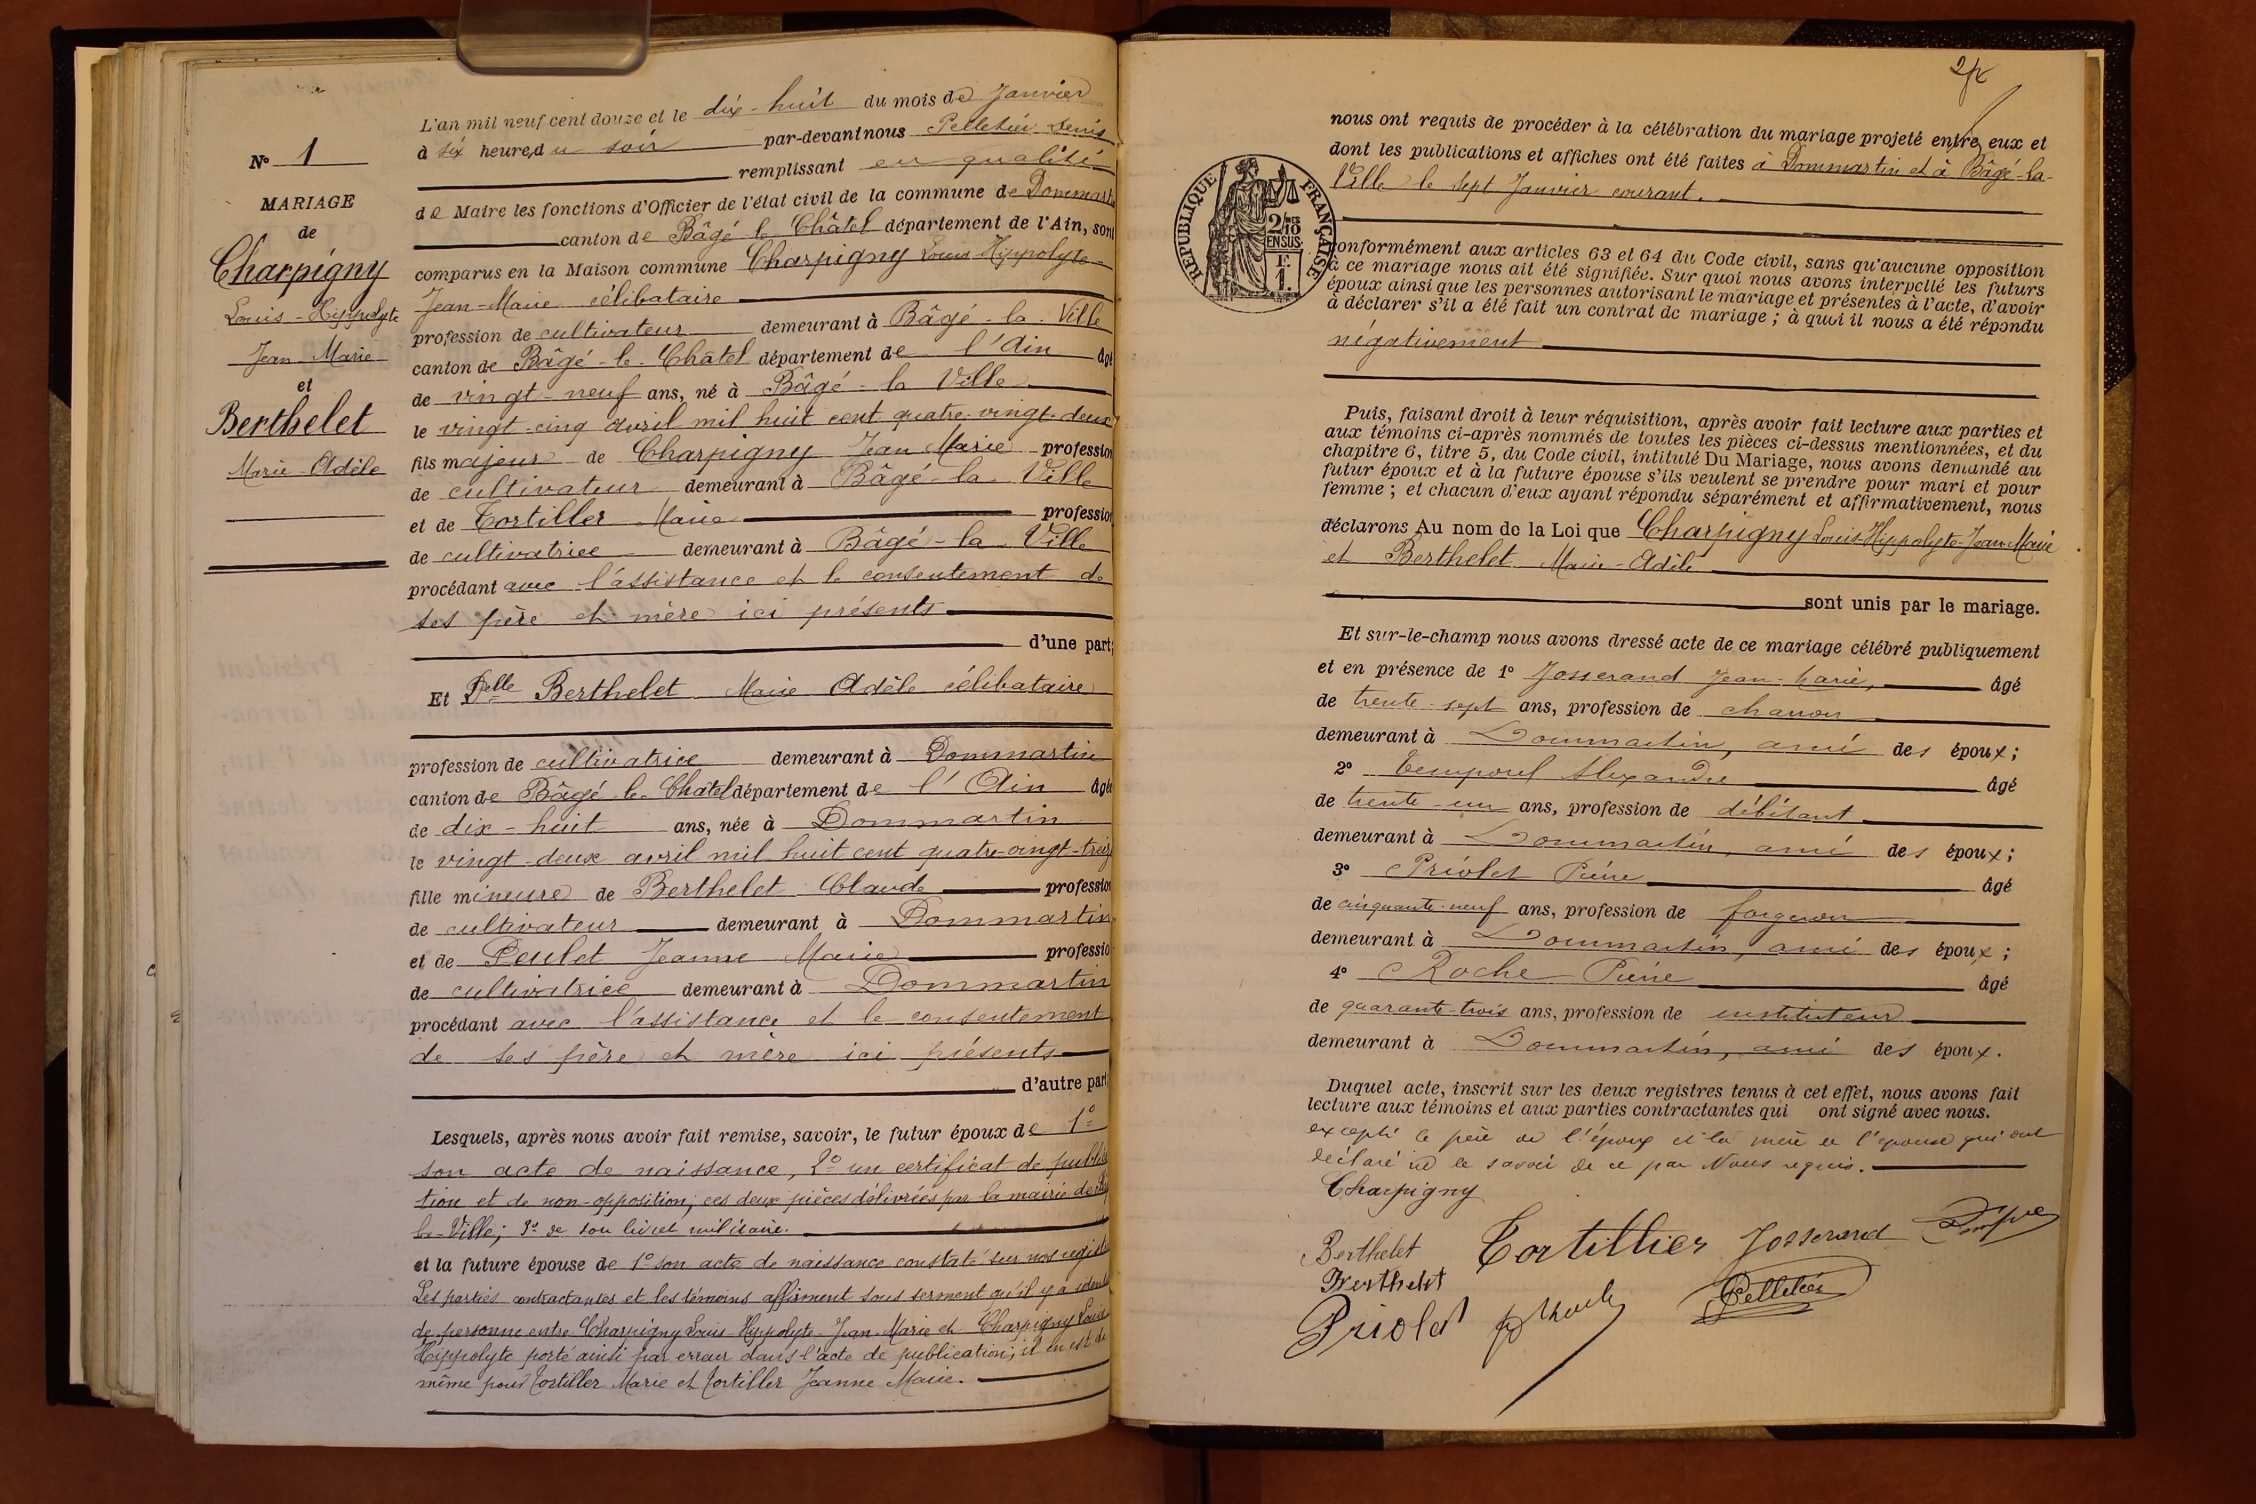 N° 1
MARIAGE
de
Charpigny
Louis-Hippolyte
Jean-Marie
et
Berthelet
Marie-Adèle
L'an mil neuf cent douze et le dix-huit du mois de Janvier
à six heures du soir par-devant nous Pelletier Denis
remplissant en qualité
de Maire les fonctions d'Officier de l'état civil de la commune de Dommartin
canton de Bâgé le Châtel département de l'Ain, sont
comparus en la Maison commune Charpigny Louis-Hippolyte-
Jean-Marie célibataire
profession de cultivateur demeurant à Bâgé-la-Ville
canton de Bâgé-le-Châtel département de l'Ain âgé
de vingt-neuf ans, né à Bâgé-la Ville
le vingt-cinq avril mil huit cent quatre-vingt-deux
fils majeur de Charpigny Jean Marie profession
de cultivateur demeurant à Bâgé-la-Ville
et de Tortiller Marie profession
de cultivatrice demeurant à Bâgé-la Ville
procédant avec l'assistance et le consentement de
ses père et mère ici présents
d'une part;
Et Delle Berthelet Marie Adèle célibataire
profession de cultivatrice demeurant à Dommartin
canton de Bâgé-le-Châtel département de l'Ain âgée
de dix-huit ans, née à Dommartin
le vingt-deux avril mil huit cent quatre-vingt-treize
fille mineure de Berthelet Claude profession
de cultivateur demeurant à Dommartin
et de Peulet Jeanne Marie profession
de cultivatrice demeurant à Dommartin
procédant avec l'assistance et le consentement
de ses père et mère ici présents
d'autre part
Lesquels, après nous avoir fait remise, savoir, le futur époux de 1°
son acte de naissance, 2° un certificat de publica
tion et de non-opposition, ces deux pièces délivrées par la mairie de Bâgé
la-Ville; 3° de son livret militaire.
et la future épouse de 1° son acte de naissance constaté sur nos registres
Les parties contractantes et les témoins affirment sous serment qu'il y a identité
de personne entre Charpigny Louis-Hippolyte-Jean-Marie et Charpigny Louis
Hippolyte porté ainsi par erreur dans l'acte de publication; il en est de
même pour Tortiller Marie et Tortiller Jeanne Marie.
nous ont requis de procéder à la célébration du mariage projeté entre eux et
dont les publications et affiches ont été faites à Dommartin et à Bâgé-la-
Ville le sept Janvier courant.
RÉPUBLIQUE FRANÇAISE
2/10 EN SUS
F. 1.
conformément aux articles 63 et 64 du Code civil, sans qu'aucune opposition
à ce mariage nous ait été signifiée. Sur quoi nous avons interpellé les futurs
époux ainsi que les personnes autorisant le mariage et présentes à l'acte, d'avoir
à déclarer s'il a été fait un contrat de mariage; à quoi il nous a été répondu
négativement
Puis, faisant droit à leur réquisition, après avoir fait lecture aux parties et
aux témoins ci-après nommés de toutes les pièces ci-dessus mentionnées, et du
chapitre 6, titre 5, du Code civil, intitulé Du Mariage, nous avons demandé au
futur époux et à la future épouse s'ils veulent se prendre pour mari et pour
femme; et chacun d'eux ayant répondu séparément et affirmativement, nous
déclarons Au nom de la Loi que Charpigny Louis-Hippolyte-Jean-Marie
et Berthelet Marie-Adèle
sont unis par le mariage.
Et sur-le-champ nous avons dressé acte de ce mariage célébré publiquement
et en présence de 1° Josserand Jean-Marie, âgé
de trente-sept ans, profession de charron
demeurant à Dommartin, ami des époux;
2° Temporel Alexandre âgé
de trente-un ans, profession de débitant
demeurant à Dommartin, ami des époux;
3° Priolet Pierre âgé
de cinquante-neuf ans, profession de forgeron
demeurant à Dommartin, ami des époux;
4° Roche Pierre âgé
de quarante-trois ans, profession de instituteur
demeurant à Dommartin, ami des époux.
Duquel acte, inscrit sur les deux registres tenus à cet effet, nous avons fait
lecture aux témoins et aux parties contractantes qui ont signé avec nous.
excepté le père de l'époux et la mère de l'épouse qui ont
déclaré ne le savoir de ce par Nous requis.
Charpigny
Berthelet Tortillier Josserand
Berthelet Pelletier
Priolet